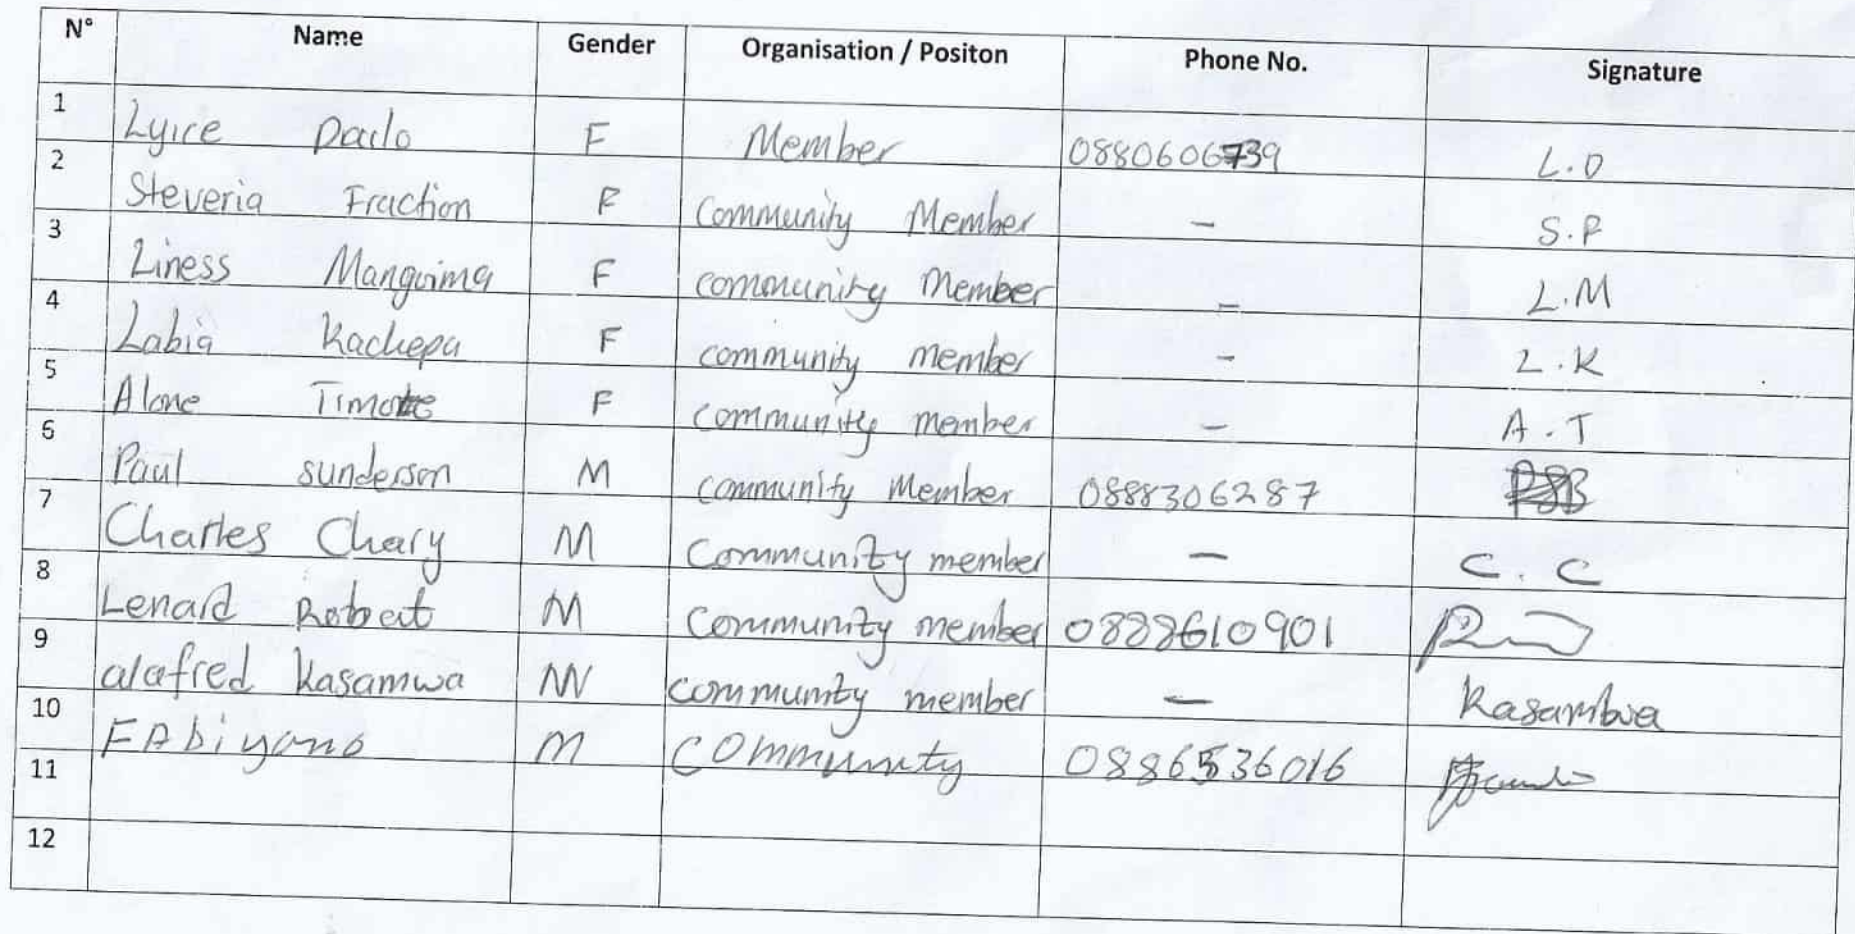 N° Name Gender Organisation / Positon Phone No. Signature
1 Lyice Dailo F Member 0880606739 L.D
2 Steveria Fraction F Community Member - S.F
3 Liness Manguima F community Member - L.M
4 Labia Kachepa F community member - L.K
5 Alone Timote F community member - A.T
6 Paul sunderson M community Member 0888306287
7 Charles Chary M Community member - C.C
8 Lenard Robert M Community member 0888610901
9 alafred Kasamwa M community member - Kasambwa
10 FAbiyano M COmmunity 0886536016
11
12